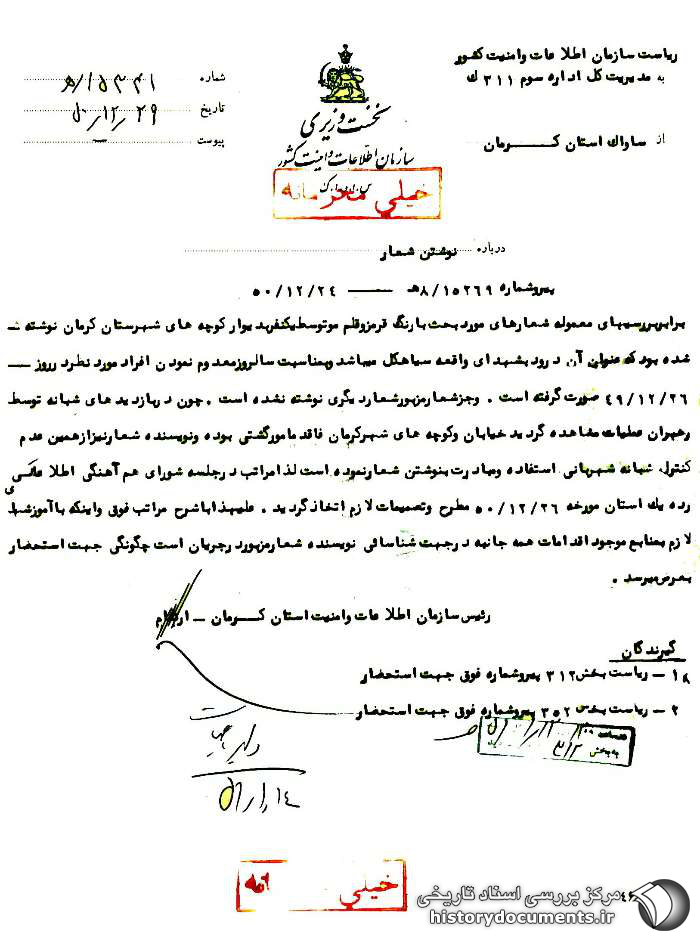 ریاست سازمان اطلاعات و امنیت کشور
به مدیریت کل اداره سوم ۳۱۱ ک
از ساواک استان کرمان
شماره ۱۵۳۴۱/ه‍
تاریخ ۵۰/۱۲/۲۹
پیوست
نخست وزیری
سازمان اطلاعات و امنیت کشور
خیلی محرمانه
درباره نوشتن شعار
پیرو شماره ۸/۱۵۲۶۹ه‍ — ۵۰/۱۲/۲۴
برابر بررسیهای معموله شعارهای مورد بحث با رنگ قرمز و قلم مو توسط یکنفر بدیوار کوچه های شهرستان کرمان نوشته
شده بود که عنوان آن درود بشهدای واقعه سیاهکل میباشد و بمناسبت سالروز معدوم نمودن افراد مورد نظر در روز
۴۹/۱۲/۲۶ صورت گرفته است . و جز شعار مزبور شعار دیگری نوشته نشده است . چون در بازدید های شبانه توسط
رهبران عملیات مشاهده گردید خیابان و کوچه های شهر کرمان فاقد مامور گشتی بوده و نویسنده شعار نیز از همین عدم
کنترل شبانه شهربانی استفاده و مبادرت بنوشتن شعار نموده است لذا مراتب در جلسه شورای هم آهنگی اطلاعاتی
رده یک استان مورخه ۵۰/۱۲/۲۶ مطرح و تصمیمات لازم اتخاذ گردید . علیهذا با شرح مراتب فوق و اینکه با آموزشها
لازم بمنابع موجود اقدامات همه جانبه در جهت شناسائی نویسنده شعار مزبور در جریان است چگونگی جهت استحضار
بعرض میرسد .
رئیس سازمان اطلاعات و امنیت استان کرمان – آرام
گیرندگان
۱– ریاست بخش ۳۱۲ پیرو شماره فوق جهت استحضار
۲– ریاست بخش ۳۵۲ پیرو شماره فوق جهت استحضار
به بخش ۳۱۲
۱۴/۱/۵۱
خیلی
مرکز بررسی اسناد تاریخی
historydocuments.ir